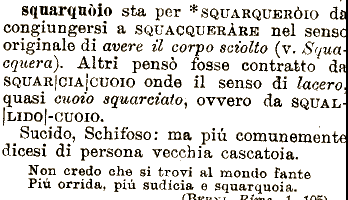 squarquòio sta per *SQUARQUERÒIO da
congiungersi a SQUACQUERÀRE nel senso
originale di avere il corpo sciolto (v. Squa-
cquera). Altri pensò fosse contratto da
SQUAR|CIA|CUOIO onde il senso di lacero,
quasi cuoio squarciato, ovvero da SQUAL-
|LIDO|-CUOIO.
Sucido, Schifoso: ma piú comunemente
dicesi di persona vecchia cascatoia.
Non credo che si trovi al mondo fante
Piú orrida, piú sudicia e squarquoia.
(BERNI, Rime, 1, 105).